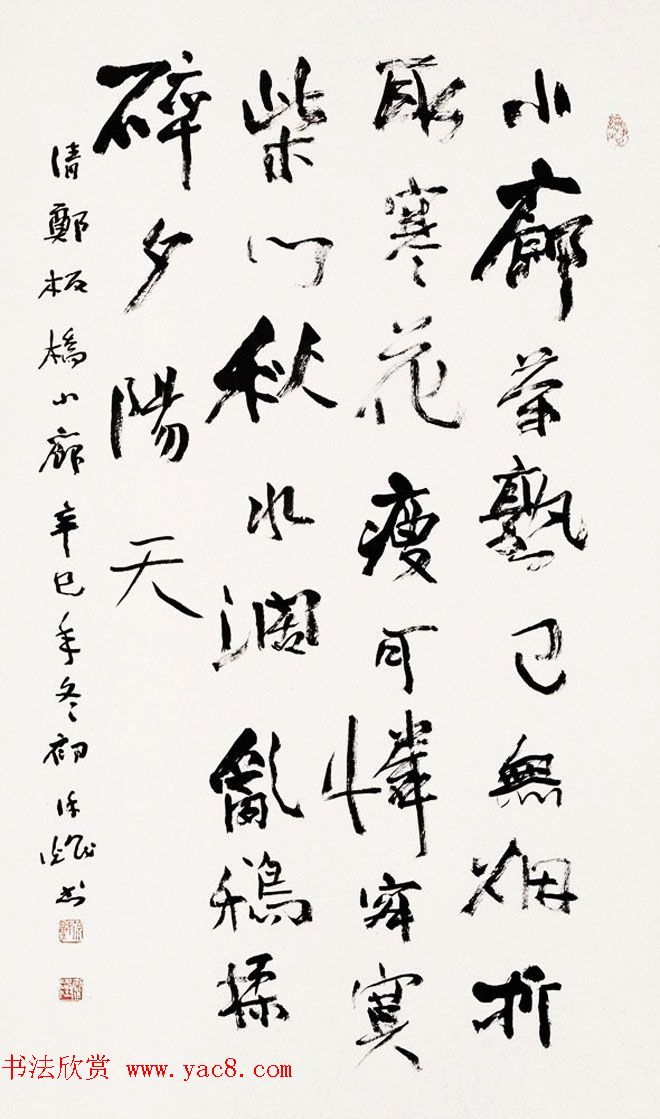 小廊茶熟已無烟折
取寒花瘦可憐寂寞
柴門秋水濶亂鴉揉
碎夕陽天
清鄭板橋小廊辛巳年冬初徐書
书法欣赏 www.yac8.com